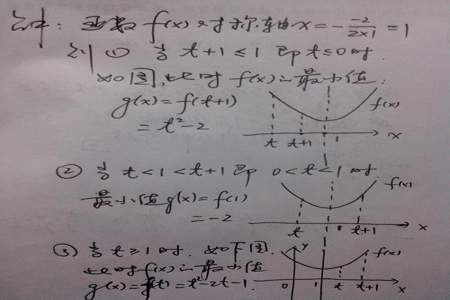 解: 函数 f(x) 对称轴 x = - -2/2×1 = 1
则 ① 当 t+1 ≤ 1 即 t ≤ 0 时.
如图, 此时 f(x) 的最小值:
g(x) = f(t+1)
= t²-2
f(x)
t t+1 1 x
② 当 t < 1 < t+1 即 0 < t < 1 时.
最小值 g(x) = f(1)
= -2
f(x)
t 1 t+1 x
③ 当 t ≥ 1 时. 如下图.
此时 f(x) 的最小值
g(x) = f(t) = t²-2t-1.
y f(x)
0 1 t t+1 x